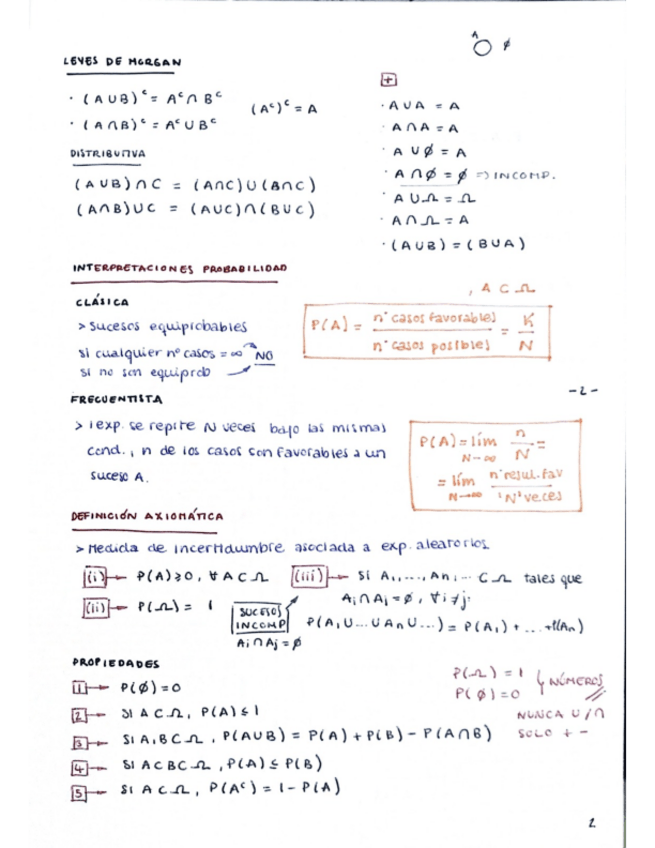 A ∅
LEYES DE MORGAN
· (A∪B)ᶜ = Aᶜ∩Bᶜ
(Aᶜ)ᶜ = A
· (A∩B)ᶜ = Aᶜ∪Bᶜ
DISTRIBUTIVA
(A∪B)∩C = (A∩C)∪(B∩C)
(A∩B)∪C = (A∪C)∩(B∪C)
+
· A∪A = A
· A∩A = A
· A∪∅ = A
· A∩∅ = ∅ => INCOMP.
· A∪Ω = Ω
· A∩Ω = A
· (A∪B) = (B∪A)
INTERPRETACIONES PROBABILIDAD
, A ⊂ Ω
CLÁSICA
> sucesos equiprobables
si cualquier nº casos = ∞ NO
si no son equiprob
P(A) = nº casos favorables / nº casos posibles = K / N
-2-
FRECUENTISTA
> 1 exp. se repite N veces bajo las mismas
cond., n de los casos son favorables a un
suceso A.
P(A) = lím N→∞ n / N =
= lím N→∞ nº resul. fav / 'N' veces
DEFINICIÓN AXIOMÁTICA
> Medida de incertidumbre asociada a exp. aleatorios
(i) → P(A) ≥ 0, ∀ A ⊂ Ω
(iii) → Si A₁,..., An,... ⊂ Ω tales que
Ai ∩ Aj = ∅, ∀ i ≠ j.
(ii) → P(Ω) = 1
SUCESOS
INCOMP
Ai ∩ Aj = ∅
P(A₁ ∪ ... ∪ An ∪ ...) = P(A₁) + ... + P(An)
PROPIEDADES
1 → P(∅) = 0
2 → Si A ⊂ Ω, P(A) ≤ 1
3 → Si A,B ⊂ Ω, P(A∪B) = P(A) + P(B) - P(A∩B)
4 → Si A ⊂ B ⊂ Ω, P(A) ≤ P(B)
5 → Si A ⊂ Ω, P(Aᶜ) = 1 - P(A)
P(Ω) = 1
P(∅) = 0
NÚMEROS
NUNCA ∪/∩
SOLO + -
2